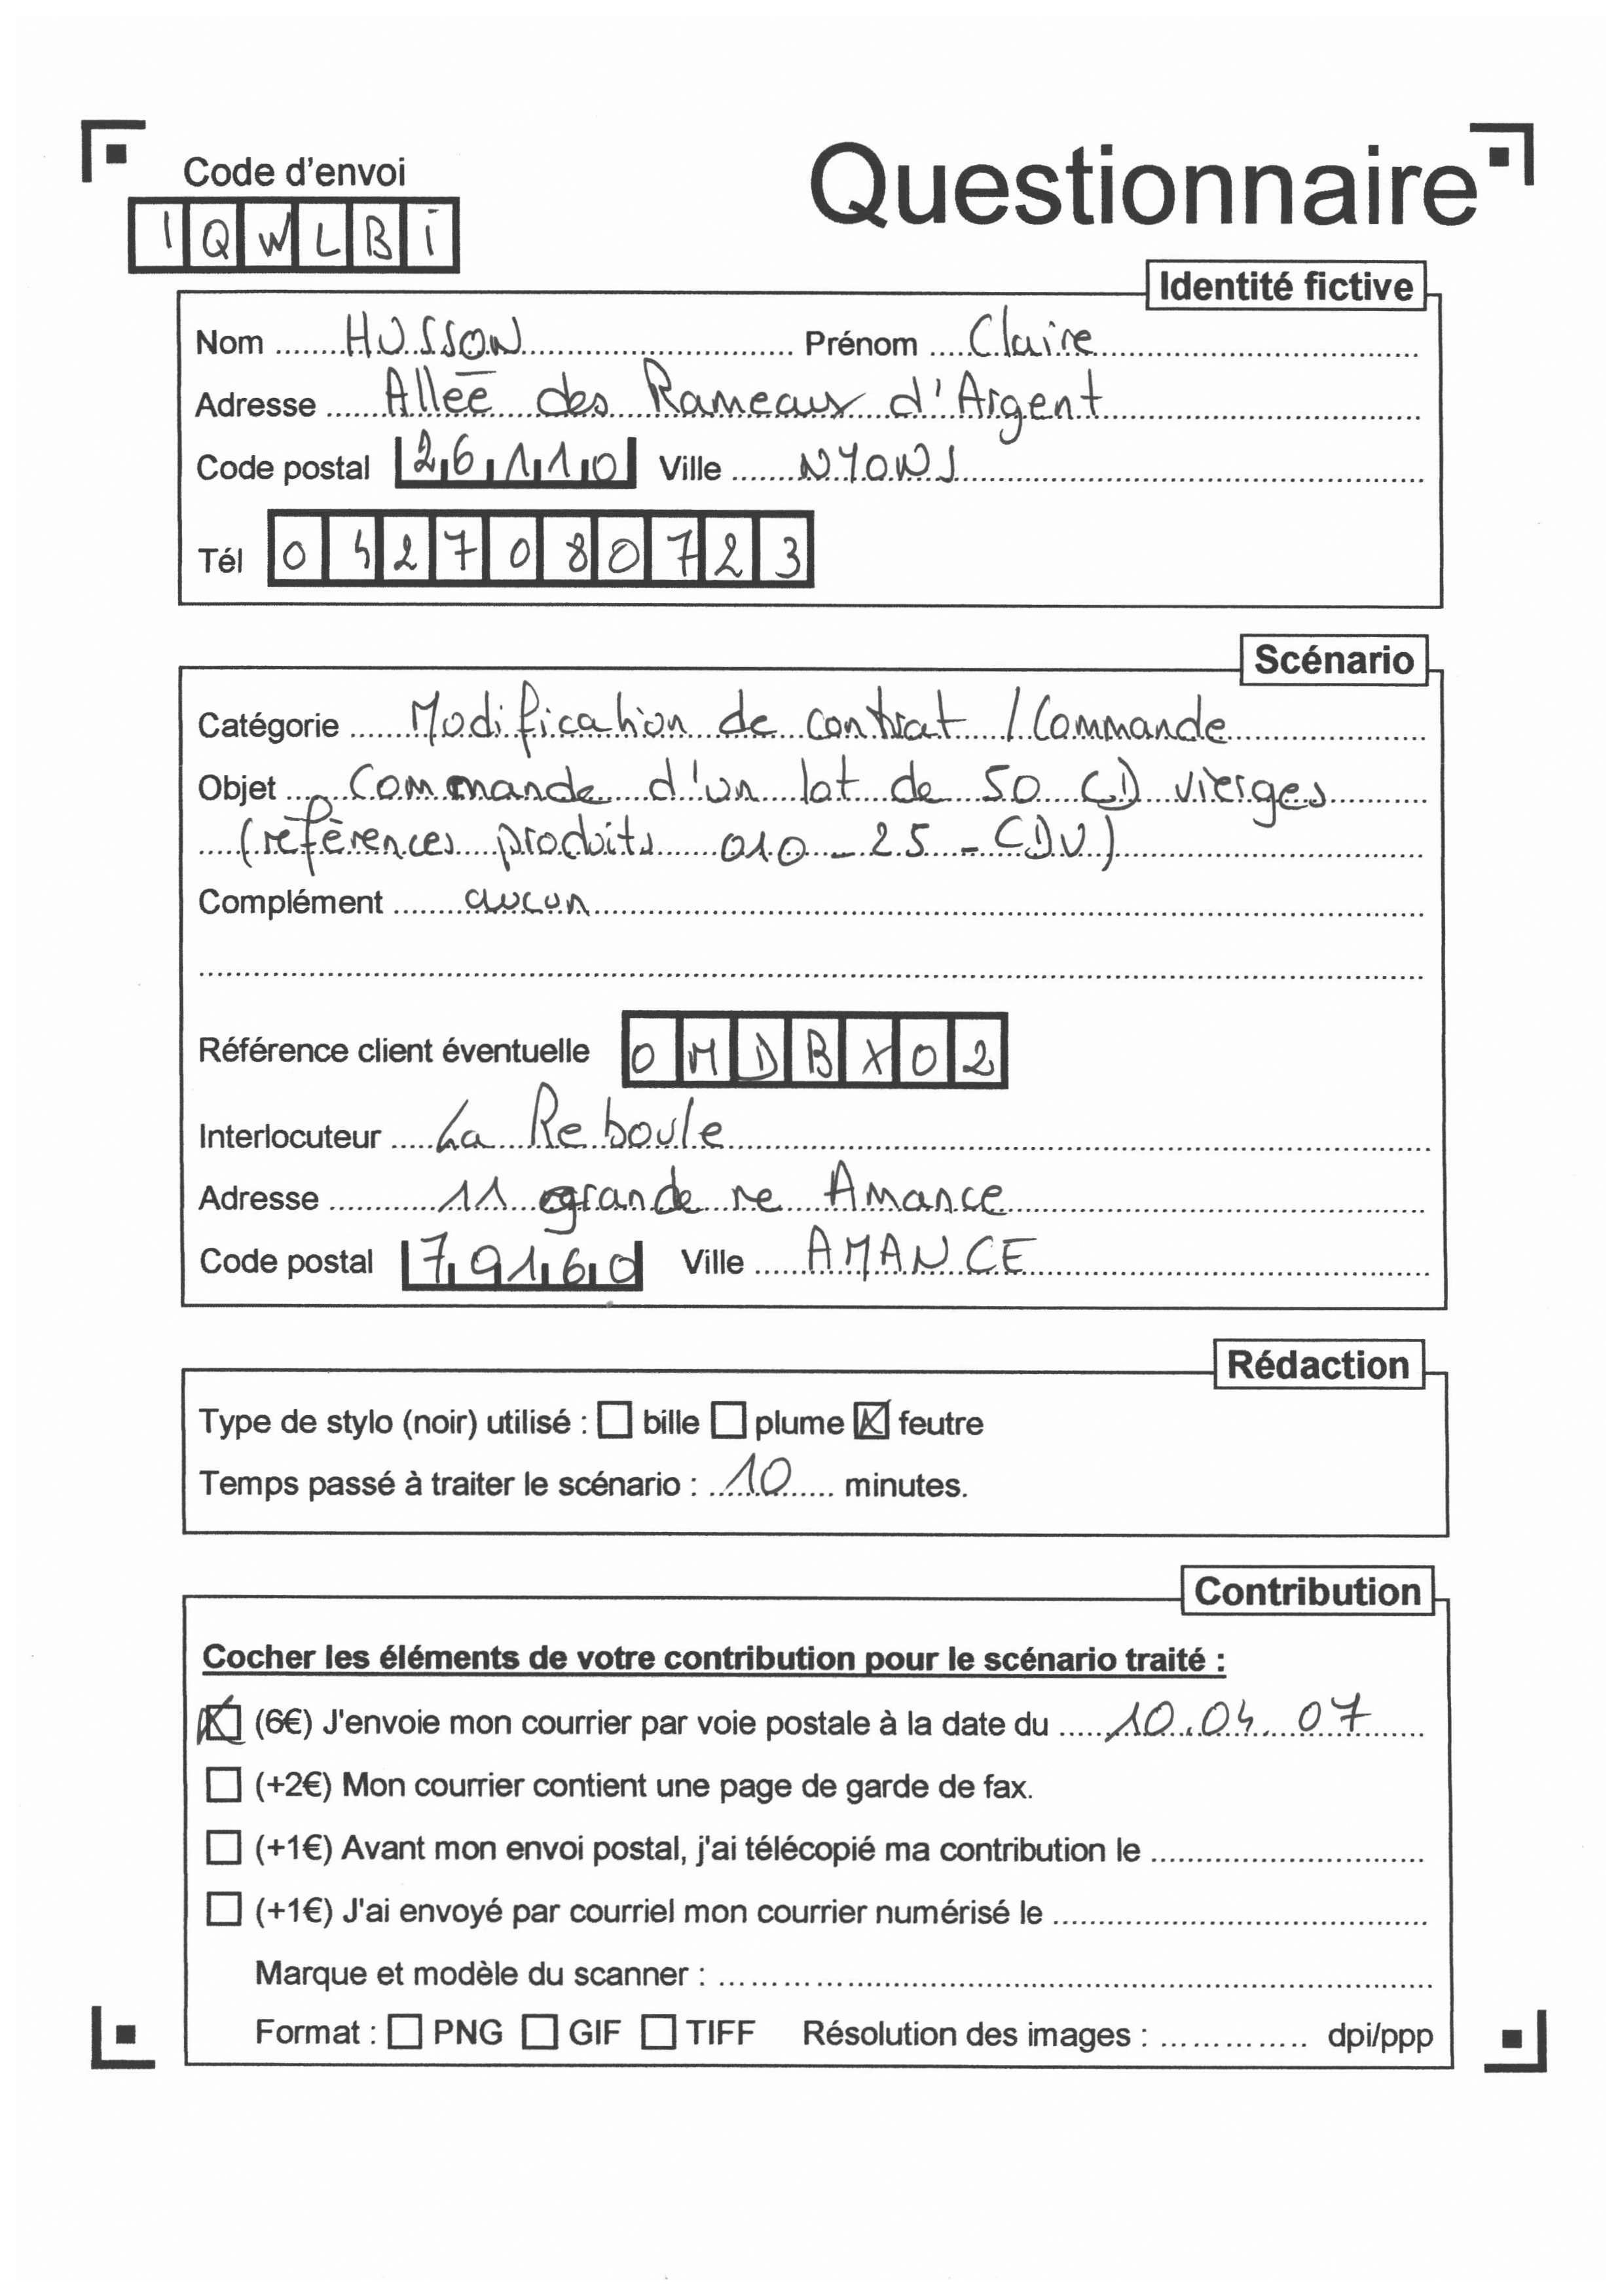 Code d'envoi
Questionnaire
I Q W L B i
Identité fictive
Nom ....... HUSSON ....... Prénom .... Claire
Adresse ...... Alleē des Rameaux d'Argent
Code postal 26110 Ville ....... NYONS
Tél 0427080723
Scénario
Catégorie ...... Modification de contrat / Commande
Objet ... Commande d'un lot de 50 CD vierges
(références produits 010_25_CDV)
Complément ....... aucun
Référence client éventuelle 0MDBX02
Interlocuteur ..... La Reboule
Adresse .......... 11 grande re Amance
Code postal 79160 Ville ...... AMANCE
Rédaction
Type de stylo (noir) utilisé : ☐ bille ☐ plume ☒ feutre
Temps passé à traiter le scénario : ..10.... minutes.
Contribution
Cocher les éléments de votre contribution pour le scénario traité :
☒ (6€) J'envoie mon courrier par voie postale à la date du ..... 10.04.07
☐ (+2€) Mon courrier contient une page de garde de fax.
☐ (+1€) Avant mon envoi postal, j'ai télécopié ma contribution le ............................
☐ (+1€) J'ai envoyé par courriel mon courrier numérisé le ......................................
Marque et modèle du scanner : ..........................................................................
Format : ☐ PNG ☐ GIF ☐ TIFF Résolution des images : .............. dpi/ppp